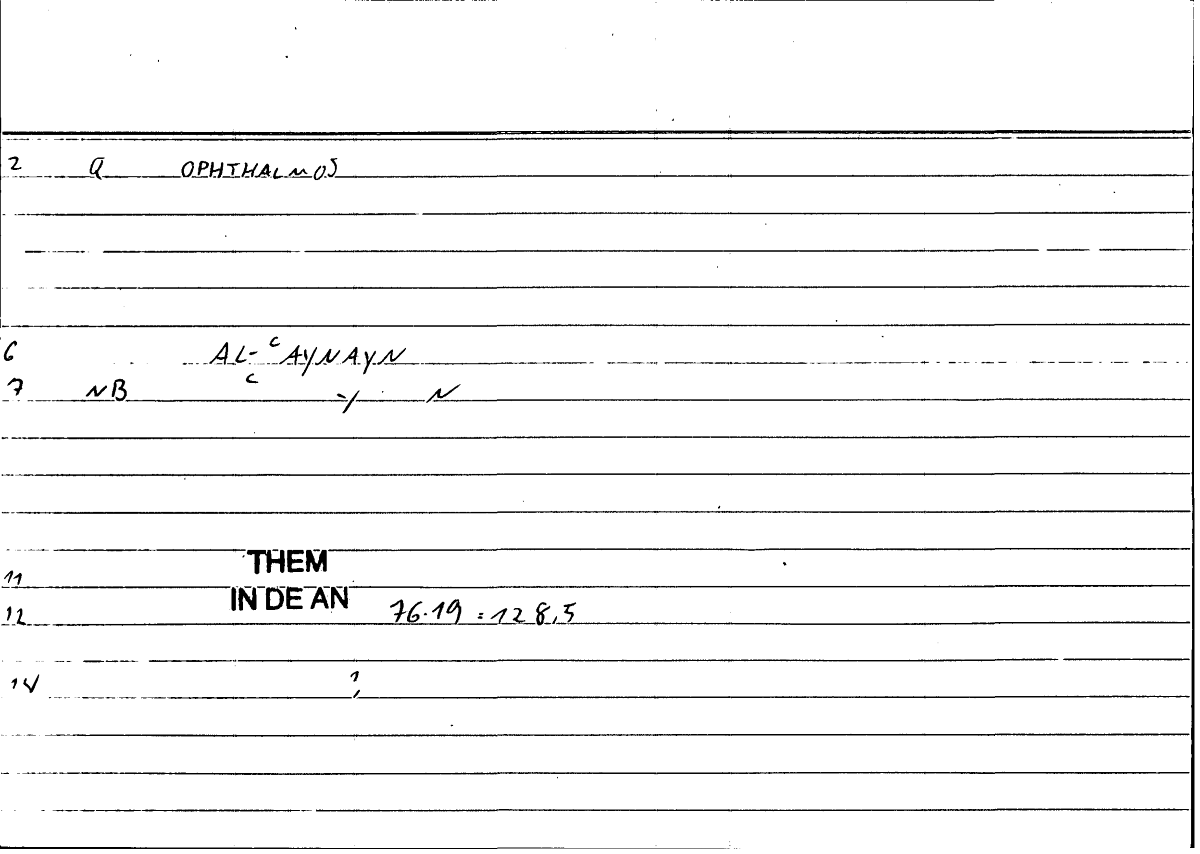 2 Q OPHTHALMOS
6 AL-ᶜAYNAYN
7 NB c -/ N
THEM
11
IN DE AN
12 76.19 = 128,5
14